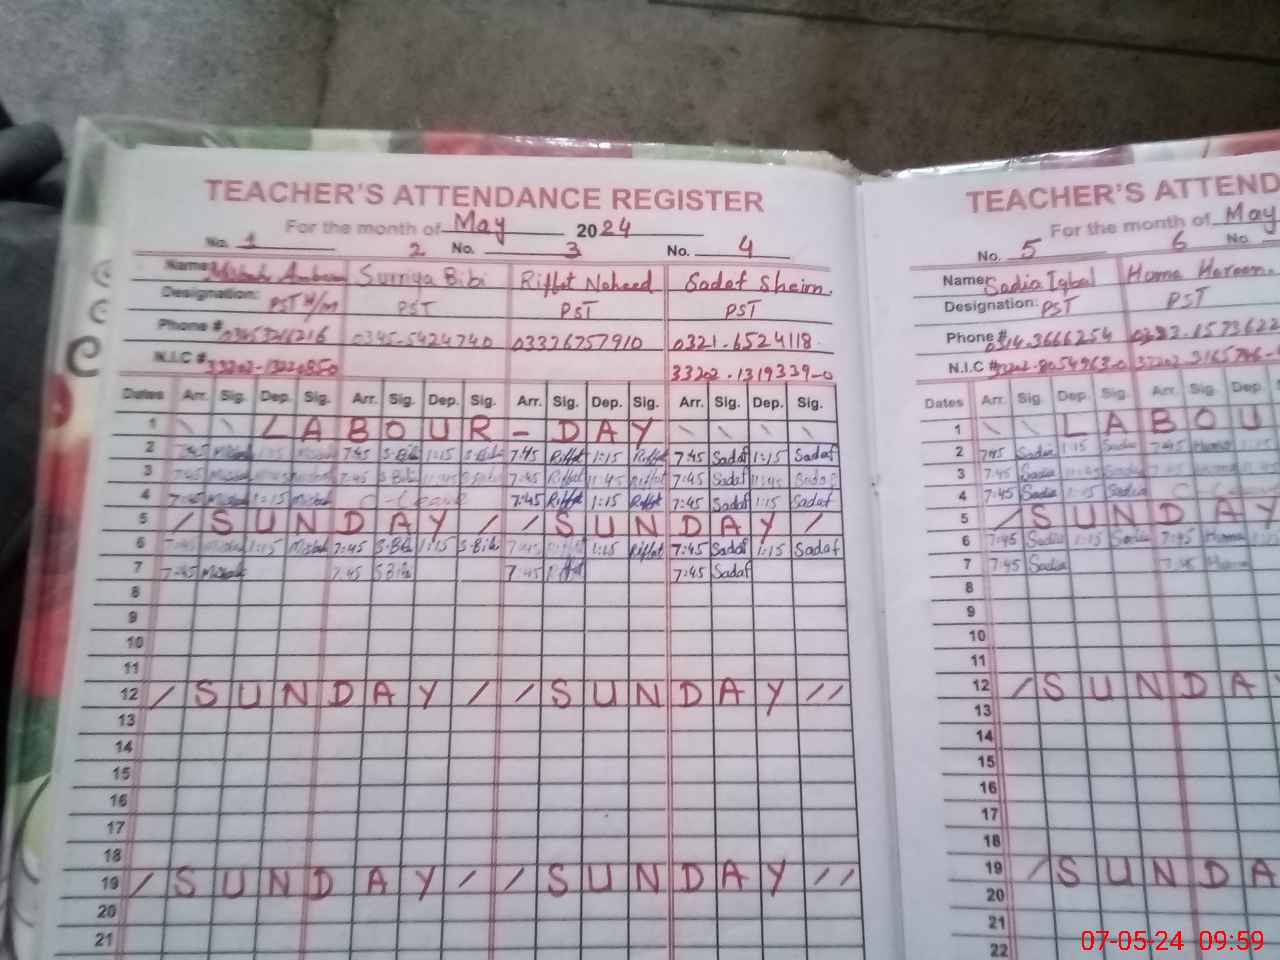 TEACHER'S ATTENDANCE REGISTER
For the month of May 2024
No. 1 2 No. 3 No. 4
Name Misbah Ambreen Surriya Bibi Riffat Naheed Sadaf Sheim.
Designation: PST H/m PST PST PST
Phone # 0345-5424740 03336757910 0321.6524118
N.I.C # 33202.1319339-0
Dates Arr. Sig. Dep. Sig. Arr. Sig. Dep. Sig. Arr. Sig. Dep. Sig. Arr. Sig. Dep. Sig.
1 \ \ L A B O U R - D A Y \ \ \ \
2 7:45 Misbah 1:15 Misbah 7:45 S.Bibi 1:15 S.Bibi 7:45 Riffat 1:15 Riffat 7:45 Sadaf 1:15 Sadaf
3 7:45 Misbah 11:45 Misbah 7:45 S.Bibi 11:45 S.Bibi 7:45 Riffat 11:45 Riffat 7:45 Sadaf 11:45 Sadaf
4 7:45 Misbah 1:15 Misbah C-Leave 7:45 Riffat 1:15 Riffat 7:45 Sadaf 1:15 Sadaf
5 / S U N D A Y / / S U N D A Y /
6 7:45 Misbah 1:15 Misbah 7:45 S.Bibi 1:15 S.Bibi 7:45 Riffat 1:15 Riffat 7:45 Sadaf 1:15 Sadaf
7 7:45 Misbah 7:45 S.Bibi 7:45 Riffat 7:45 Sadaf
8
9
10
11
12 / S U N D A Y / / S U N D A Y / /
13
14
15
16
17
18
19 / S U N D A Y / / S U N D A Y / /
20
21
TEACHER'S ATTEND
For the month of May
No. 5 6 No.
Name: Sadia Iqbal Huma Haroon.
Designation: PST PST
Phone # 0314.3666254
N.I.C #
Dates Arr. Sig. Dep. Sig. Arr. Sig. Dep.
1 \ \ L A B O U
2 7:45 Sadia 1:15 Sadia 7:45 Huma 1:15
3 7:45 Sadia 11:45 Sadia 7:45 Huma
4 7:45 Sadia 1:15 Sadia
5 / S U N D A Y
6 7:45 Sadia 1:15 Sadia 7:45 Huma
7 7:45 Sadia 7:45 Huma
8
9
10
11
12 / S U N D A
13
14
15
16
17
18
19 / S U N D A
20
21
22
07-05-24 09:59